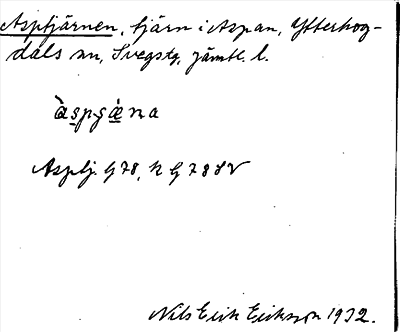 Asptjärnen, tjärn i Aspan, Ytterhog-
dals sn, Svegs tg, Jämtl. l.
àspɟæ̀na
Asptj. G 78, N G 78 SV
Nils Erik Eriksson 1932.